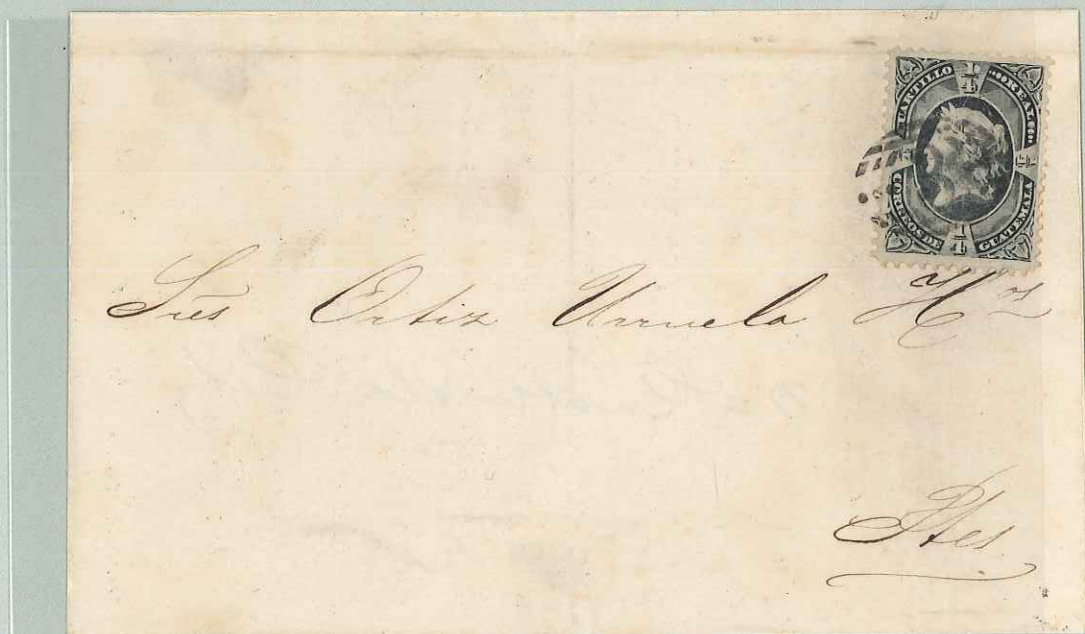 CUARTILLO REAL
1/4 1/4 1/4
CORREOS DE GUATEMALA
Sres Ortiz Urruela Hs
Ptes